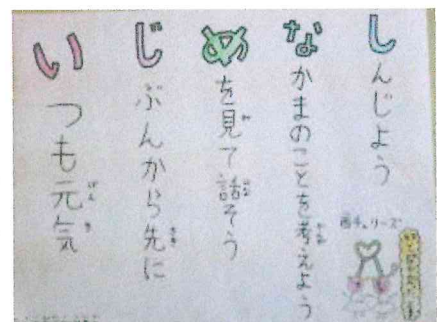 しんじよう
なかまのことを考えよう
めを見て話そう
じぶんから先に
いつも元気